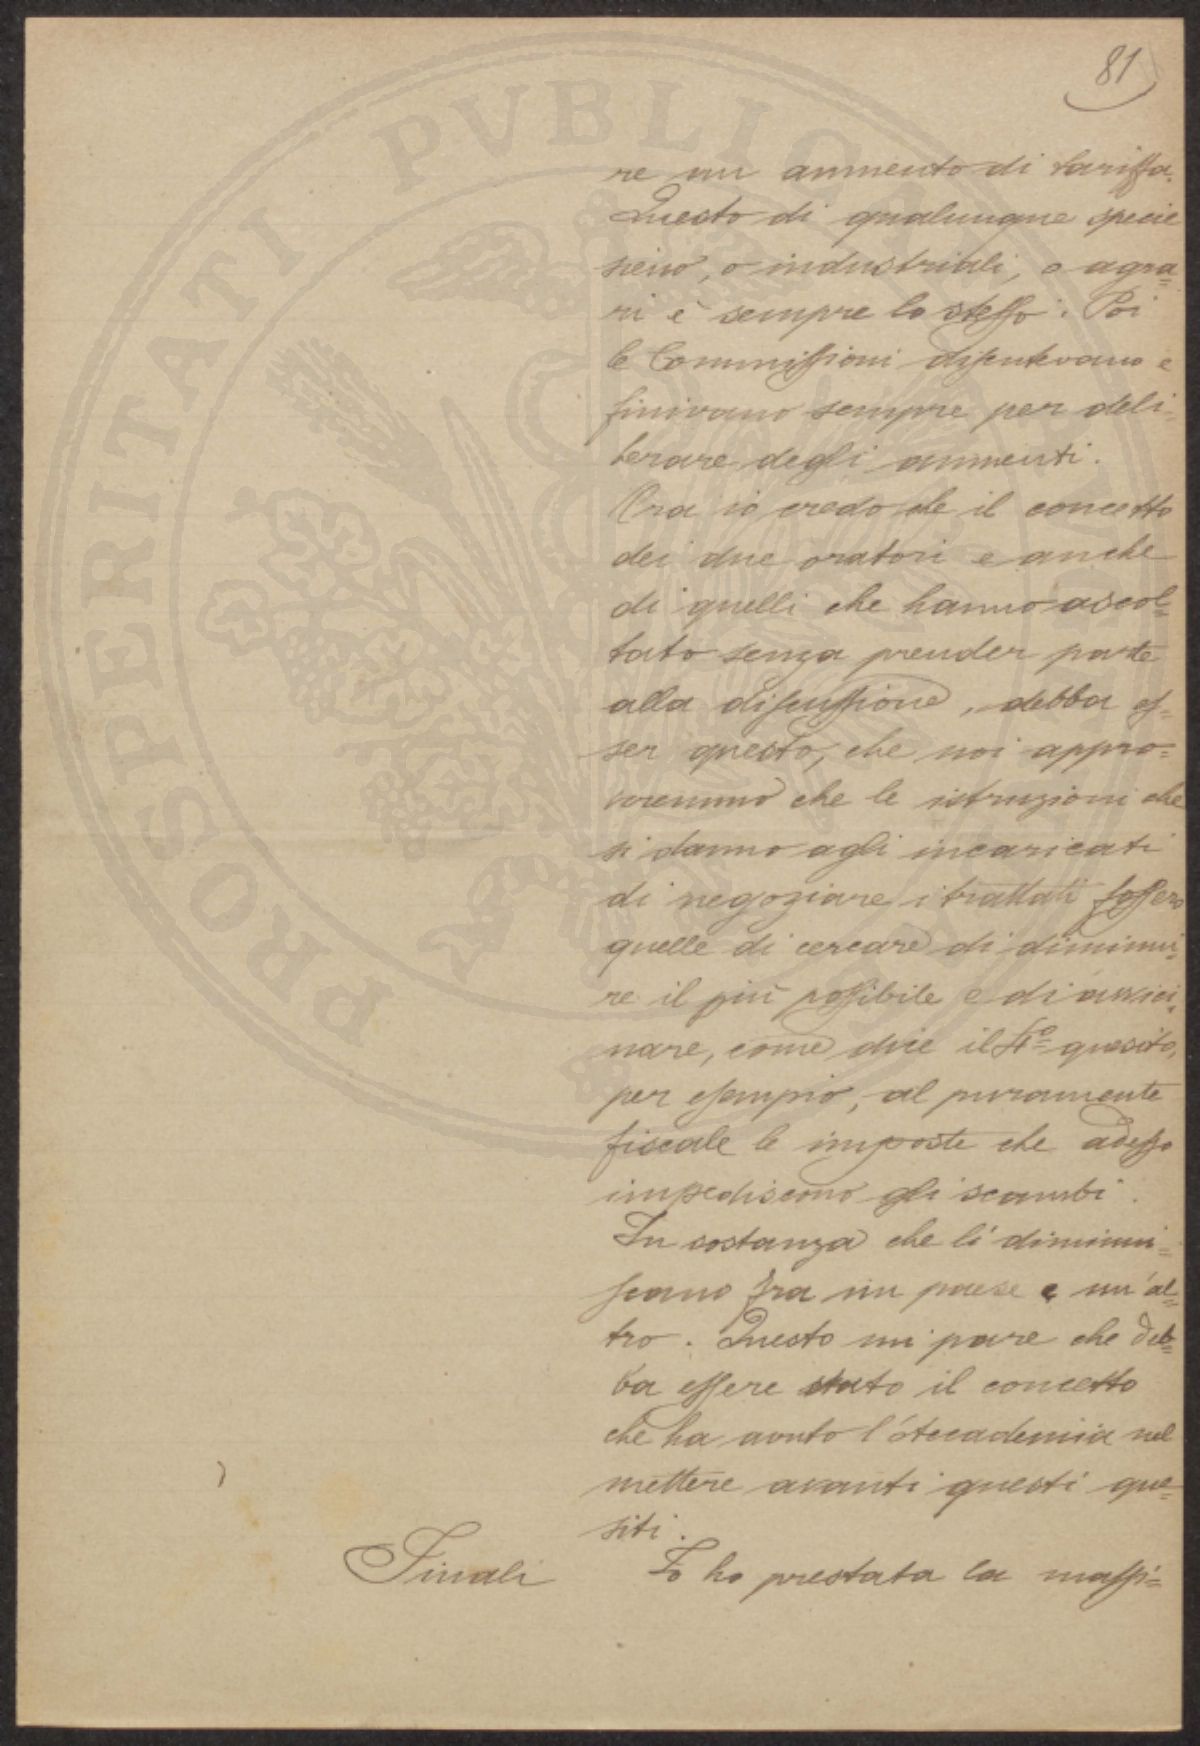 81
re un aumento di tariffa.
Questo di qualunque specie
sieno, o industriali, o agra=
ri è sempre lo stesso. Poi
le Commissioni discutevano e
finivano sempre per deli=
berare degli aumenti.
Ora io credo che il concetto
dei due oratori e anche
di quelli che hanno ascol=
tato senza prender parte
alla discussione, debba es=
ser questo, che noi appro=
veremmo che le istruzioni che
si danno agli incaricati
di negoziare i trattati fossero
quelle di cercare di diminui=
re il più possibile e di avvici=
nare, come dice il 4º quesito,
per esempio, al puramente
fiscale le imposte che adesso
impediscono gli scambi.
In sostanza che li diminui=
scano fra un paese e un'al=
tro. Questo mi pare che deb=
ba essere stato il concetto
che ha avuto l'Accademia nel
mettere avanti questi que=
siti.
Finali Io ho prestata la massi=
PROSPERITATI PVBLICAE